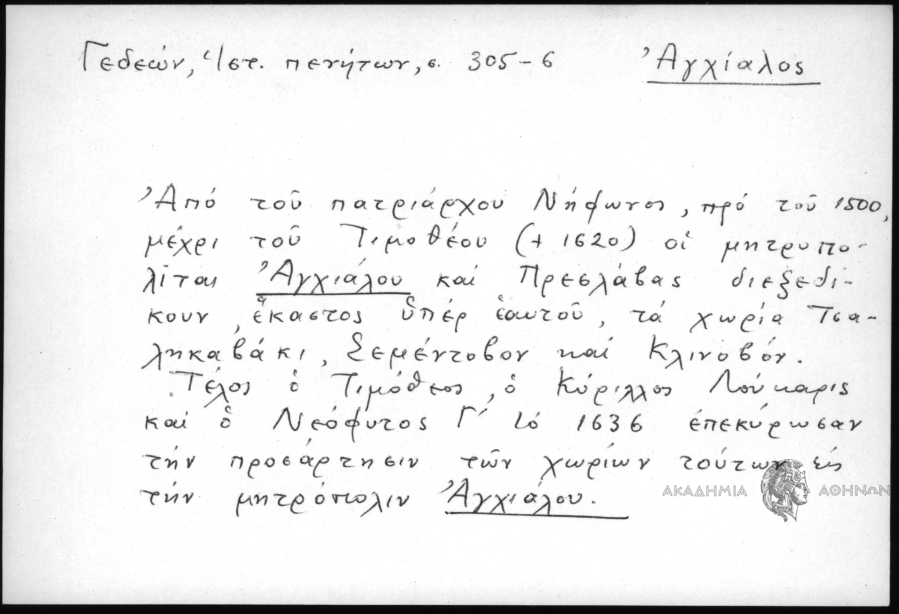 Γεδεών, Ἱστ. πενήτων, σ. 305-6
Ἀγχίαλος
Ἀπό τοῦ πατριάρχου Νήφωνος, πρό τοῦ 1500,
μέχρι τοῦ Τιμοθέου (+ 1620) οἱ μητροπο-
λίται Ἀγχιάλου καί Πρεσλάβας διεξεδί-
κουν, ἕκαστος ὑπέρ ἑαυτοῦ, τά χωρία Τσα-
ληκαβάκι, Σεμέντοβον καί Κλινοβόν.
Τέλος ὁ Τιμόθεος, ὁ Κύριλλος Λούκαρις
καί ὁ Νεόφυτος Γ´ τό 1636 ἐπεκύρωσαν
τήν προσάρτησιν τῶν χωρίων τούτων εἰς
τήν μητρόπολιν Ἀγχιάλου.
ΑΚΑΔΗΜΙΑ ΑΘΗΝΩΝ